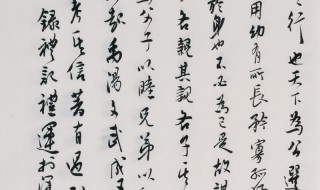 之行也天下為公選
用幼有所長矜寡孤
於身也不必為己是故謀
各親其親各子其
父子以睦兄弟以
禹湯文武成王
考其信著有過
錄禮記禮運